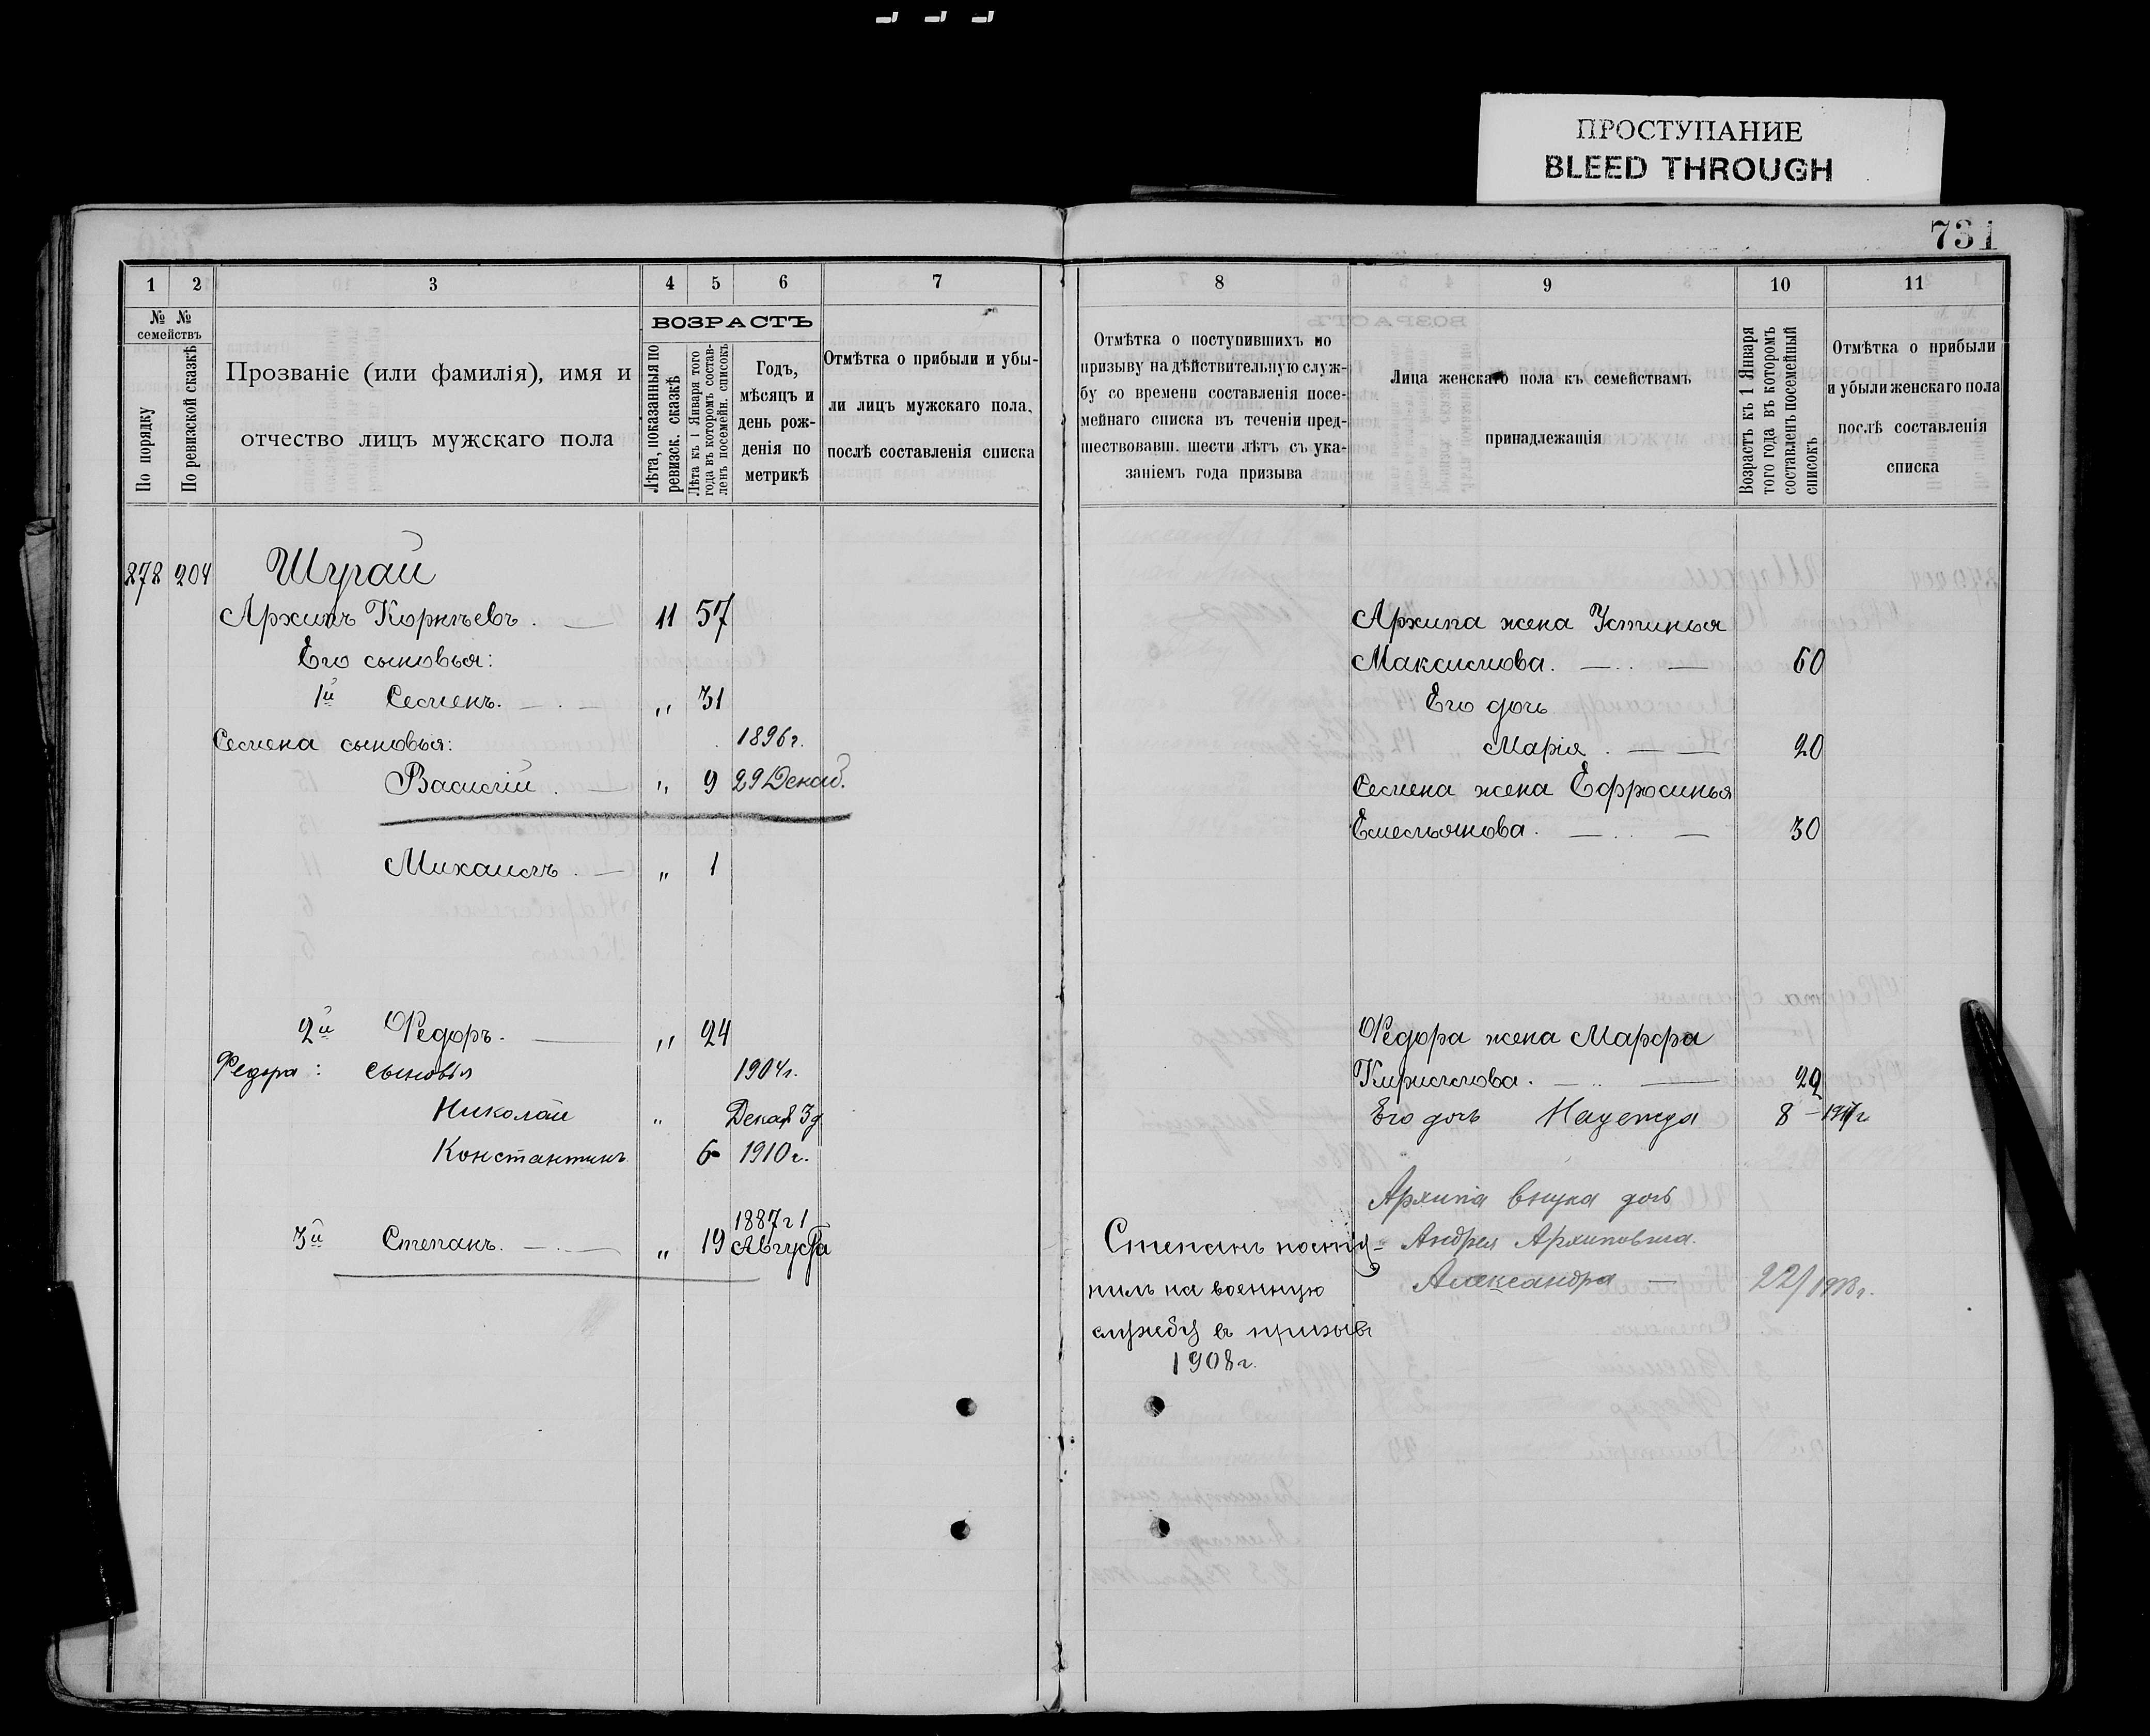 ПРОСТУПАНИЕ
BLEED THROUGH
731
1 2 3 4 5 6 7
№ № семействъ
По порядку
По ревизской сказкѣ
Прозваніе (или фамилія), имя и
отчество лицъ мужскаго пола
ВОЗРАСТЪ
Лѣта, показанныя по
ревизск. сказкѣ
Лѣта къ 1 Января того
года въ которомъ состав-
ленъ посемейн. списокъ
Годъ,
мѣсяцъ и
день рож-
денія по
метрикѣ
Отмѣтка о прибыли и убы-
ли лицъ мужскаго пола,
послѣ составленія списка
278 204 Шугай
Архипъ Корнѣевъ. 11 57
Его сыновья:
1й Семенъ. „ 31
Семена сыновья: 1896г.
Василій „ 9 29 Декаб.
Михаилъ „ 1
2й Ѳедоръ. „ 24
Федора: сыновья 1904г.
Николай „ Декаб 3д.
Константинъ 6 1910г.
1887г 1
3й Степанъ. „ 19 Августа
8 9 10 11
Отмѣтка о поступившихъ по
призыву на дѣйствительную служ-
бу со времени составленія посе-
мейнаго списка въ теченіи пред-
шествовавш. шести лѣтъ съ ука-
заніемъ года призыва
Лица женскаго пола къ семействамъ
принадлежащія
Возрастъ къ 1 Января
того года въ которомъ
составленъ посемейный
списокъ
Отмѣтка о прибыли
и убыли женскаго пола
послѣ составленія
списка
Архипа жена Устинья
Максимова. 60
Его дочь
Марія 20
Семена жена Ефросинья
Емельянова. 30
Ѳедора жена Марфа
Кириллова.
Его дочь Надежда 8
Архипа внука дочь
Андрея Архиповича.
Александра 22/
Степанъ посту-
пилъ на военную
службу въ призывъ
1908г.